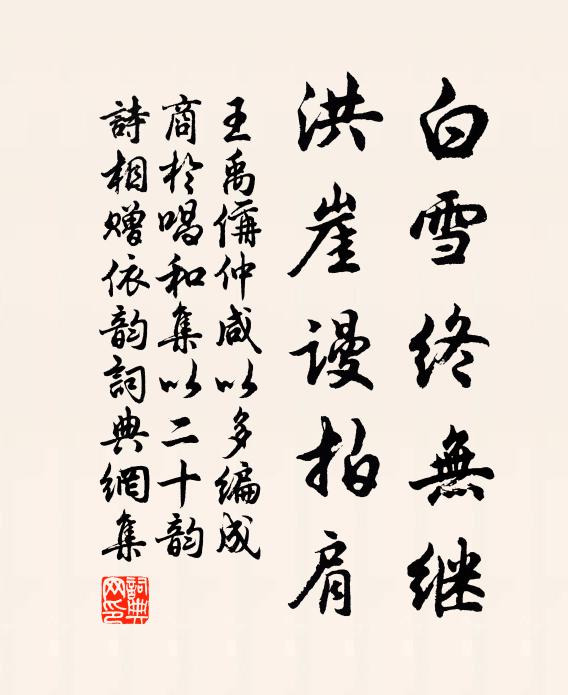 白雪終無继
洪崖謾拍肩
王禹偁仲咸以多編成
商於唱和集以二十韵
詩相赠依韵詞典網集